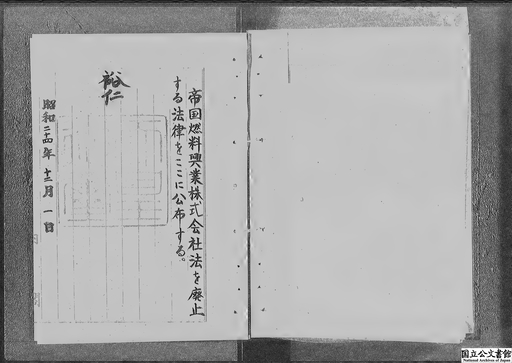 帝国燃料興業株式会社法を廃止
する法律をここに公布する。
裕仁
昭和二十四年十二月一日
国立公文書館
National Archives of Japan